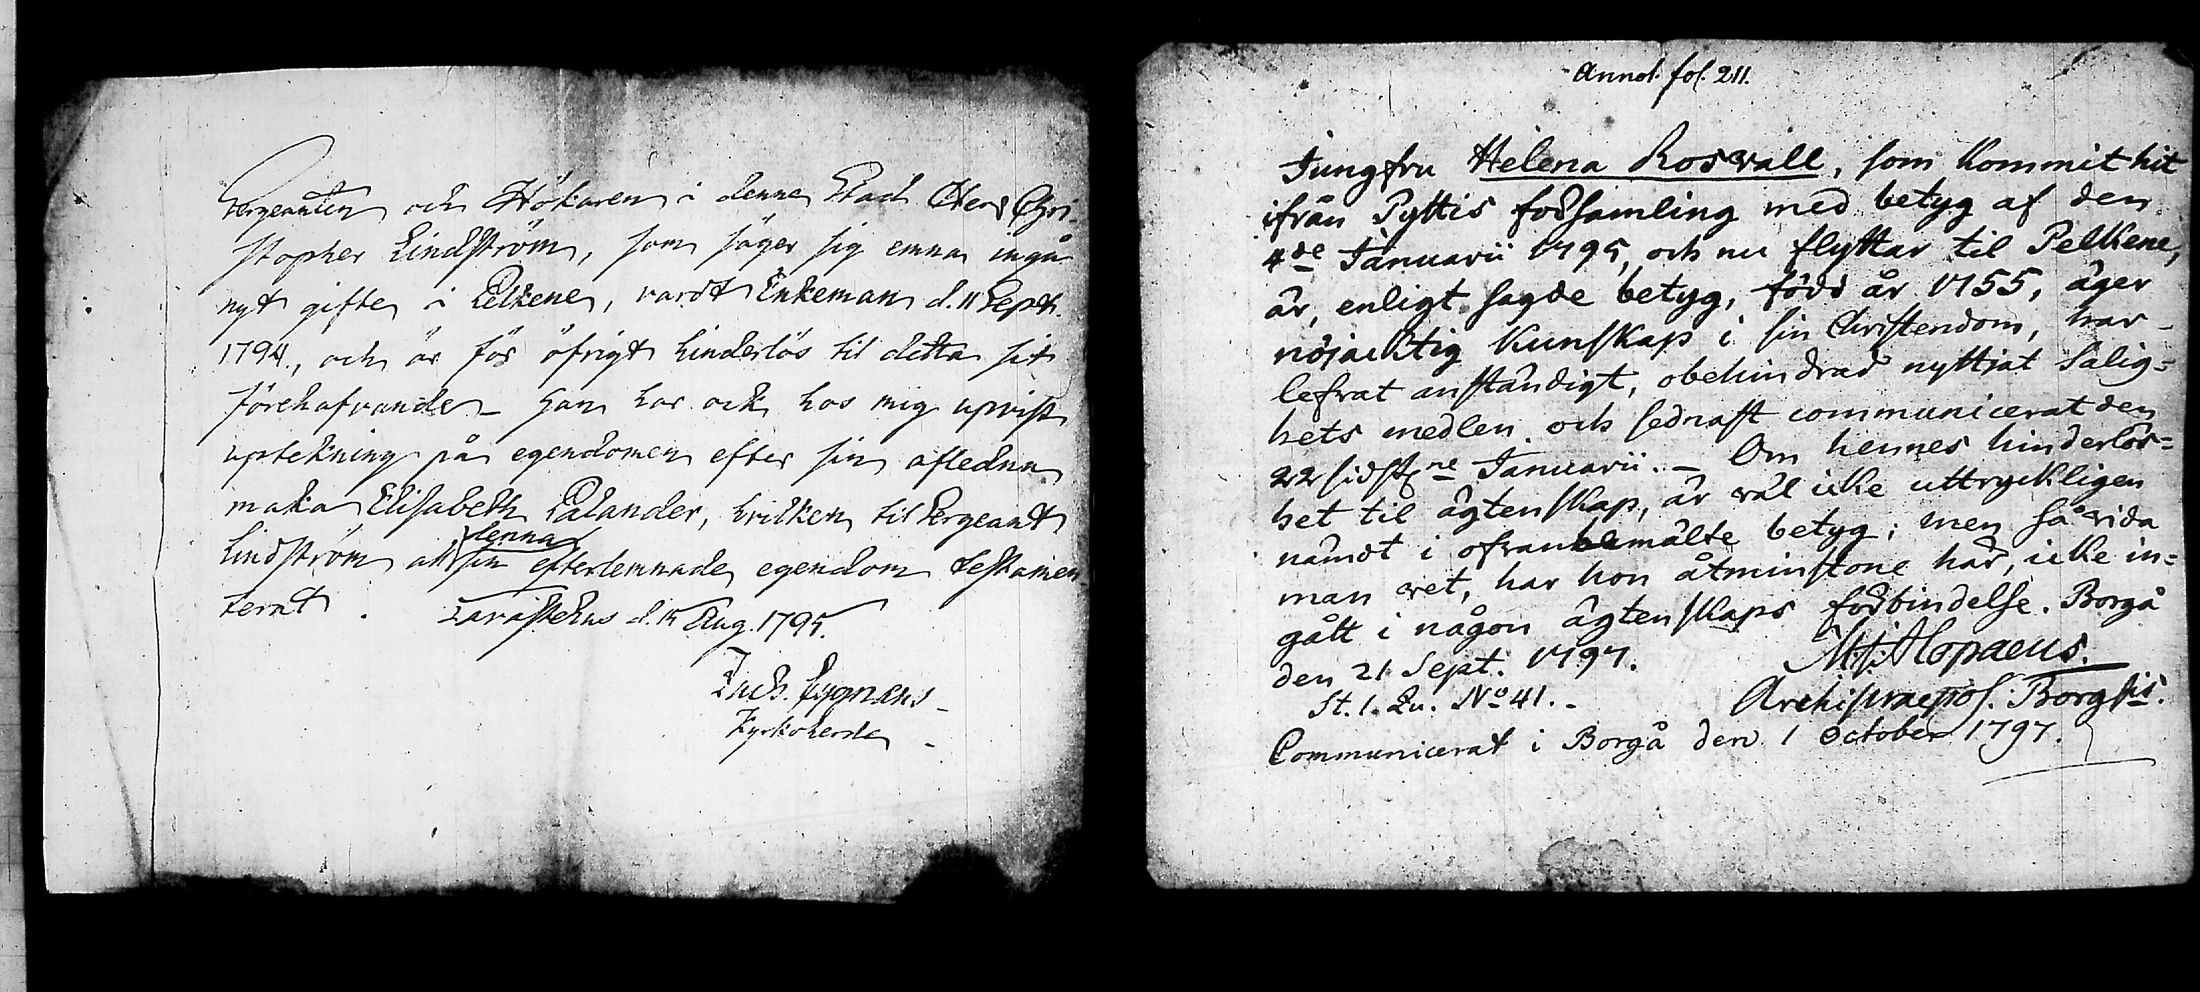 Sergeanten och Hökaren i denne Stad Herr Chri-
stopher Lindström, som säger sig ernna ingå
nytt gifte i Pelkene, vardt Enkeman d. 11 Sept.
1794., och är för öfrigt hinderlös til detta sit
förehafvande – Han har ock hos mig upvist
uptekning på egendomen efter sin aflednna
maka Elisabeth Palander, hvilken til Sergeant
Lindström all sin denna efterlemnade egendom testamen
terat. Tavastehus d. 15 Aug. 1795.
Zach. Cygnæus
Kyrkoherde –
Annot. fol. 211.
Jungfru Helena Roswall, som kommit hit
ifrån Pyttis församling med betyg af den
4de Januarii 1795, och nu flyttar til Pelkene,
är, enligt sagde betyg, född år 1755, äger
nöjacktig kunskap i sin Christendom, har
lefvat anständigt, obehindrad nyttjat salig=
hets medlen och sednast communicerat den
22 sidstne Januarii. – Om hennes hinderlös=
het til ägtenskap, är väl icke uttryckligen
nämdt i ofvanbemälte betyg; men så vida
man vet, har hon åtminstone här, icke in=
gått i någon ägtenskaps förbindelse. Borgå
den 21 Sept. 1797.
M. J. Alopaeus.
St. 1. Qu. No 41. –
Archipraepos. Borgsis.
Communicerat i Borgå den 1 October 1797.